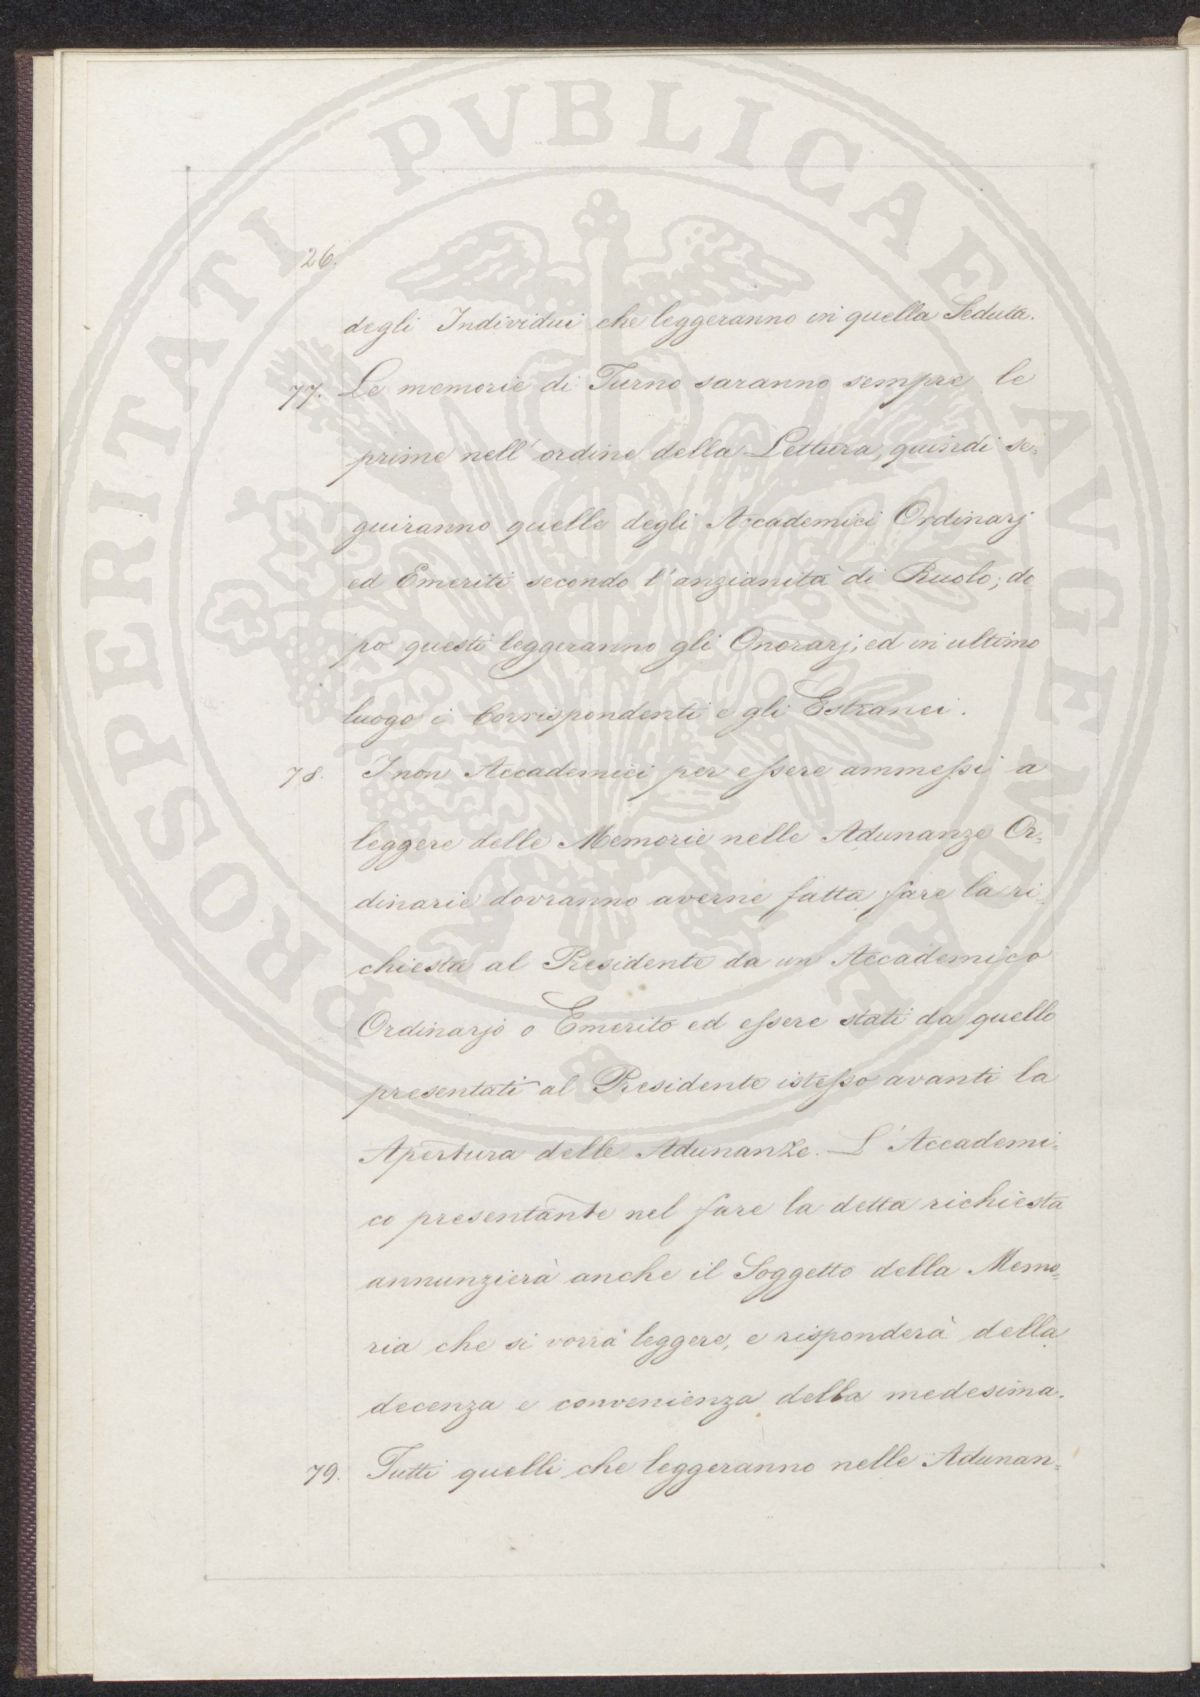 PROSPERITATI PVBLICAE AVGENDAE
26.
degli Individui che leggeranno in quella Seduta.
77. Le memorie di Turno saranno sempre le
prime nell' ordine della Lettura, quindi se=
guiranno quelle degli Accademici Ordinarj
ed Emeriti secondo l'anzianità di Ruolo; do
po questi leggeranno gli Onorarj, ed in ultimo
luogo i Corrispondenti e gli Estranei.
78. I non Accademici per essere ammessi a
leggere delle Memorie nelle Adunanze Or=
dinarie dovranno averne fatta fare la ri=
chiesta al Presidente da un Accademico
Ordinarjo o Emerito ed essere stati da quello
presentati al Presidente istesso avanti la
Apertura delle Adunanze. L'Accademi=
co presentante nel fare la detta richiesta
annunzierà anche il Soggetto della Memo=
ria che si vorrà leggere, e risponderà della
decenza e convenienza della medesima.
79. Tutti quelli che leggeranno nelle Adunan=